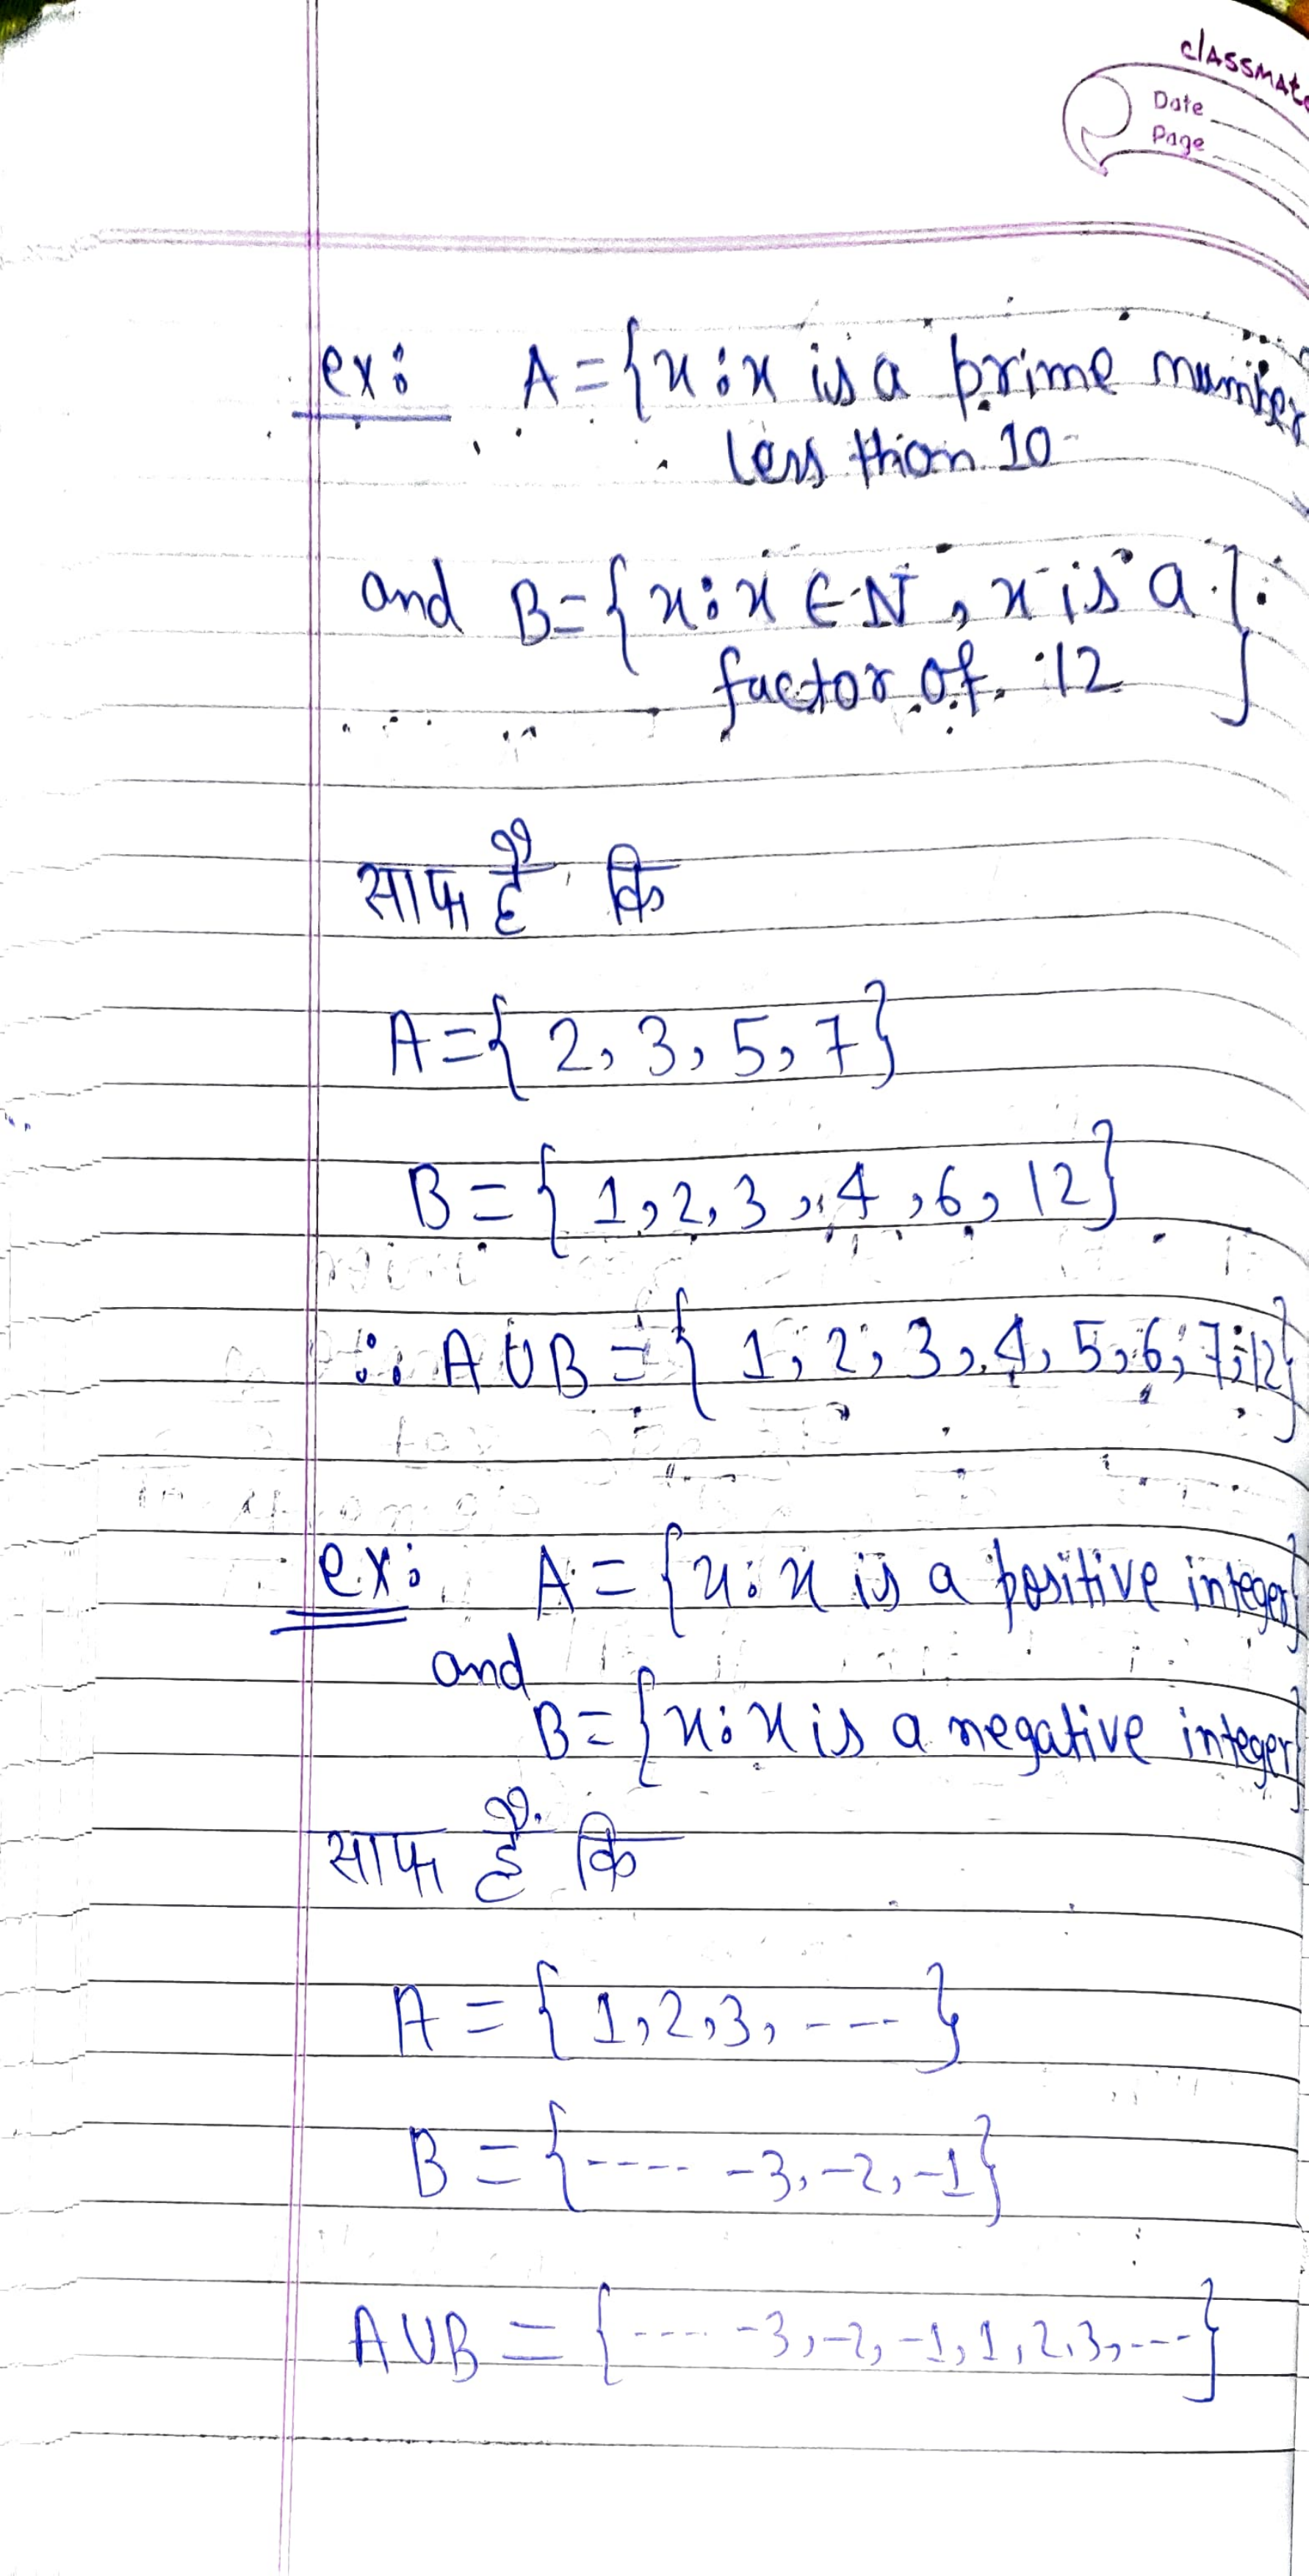 classmate
Date
Page
ex: A = {x : x is a prime number
less than 10
and B = {x : x ∈ N, x is a
factor of 12 }
साफ है कि
A = { 2, 3, 5, 7}
B = { 1, 2, 3, 4, 6, 12}
∴ A ∪ B = { 1, 2, 3, 4, 5, 6, 7, 12}
ex: A = {x : x is a positive integer}
and
B = {x : x is a negative integer}
साफ है कि
A = { 1, 2, 3, ---- }
B = {---- -3, -2, -1}
A ∪ B = {---- -3, -2, -1, 1, 2, 3, ---}